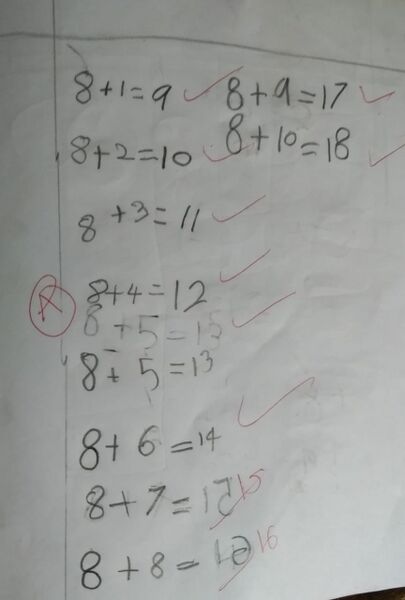 8+1=9
8+2=10
8+3=11
8+4=12
8+5=13
8+5=13
8+6=14
8+7=15 15
8+8=16 16
8+9=17
8+10=18
A